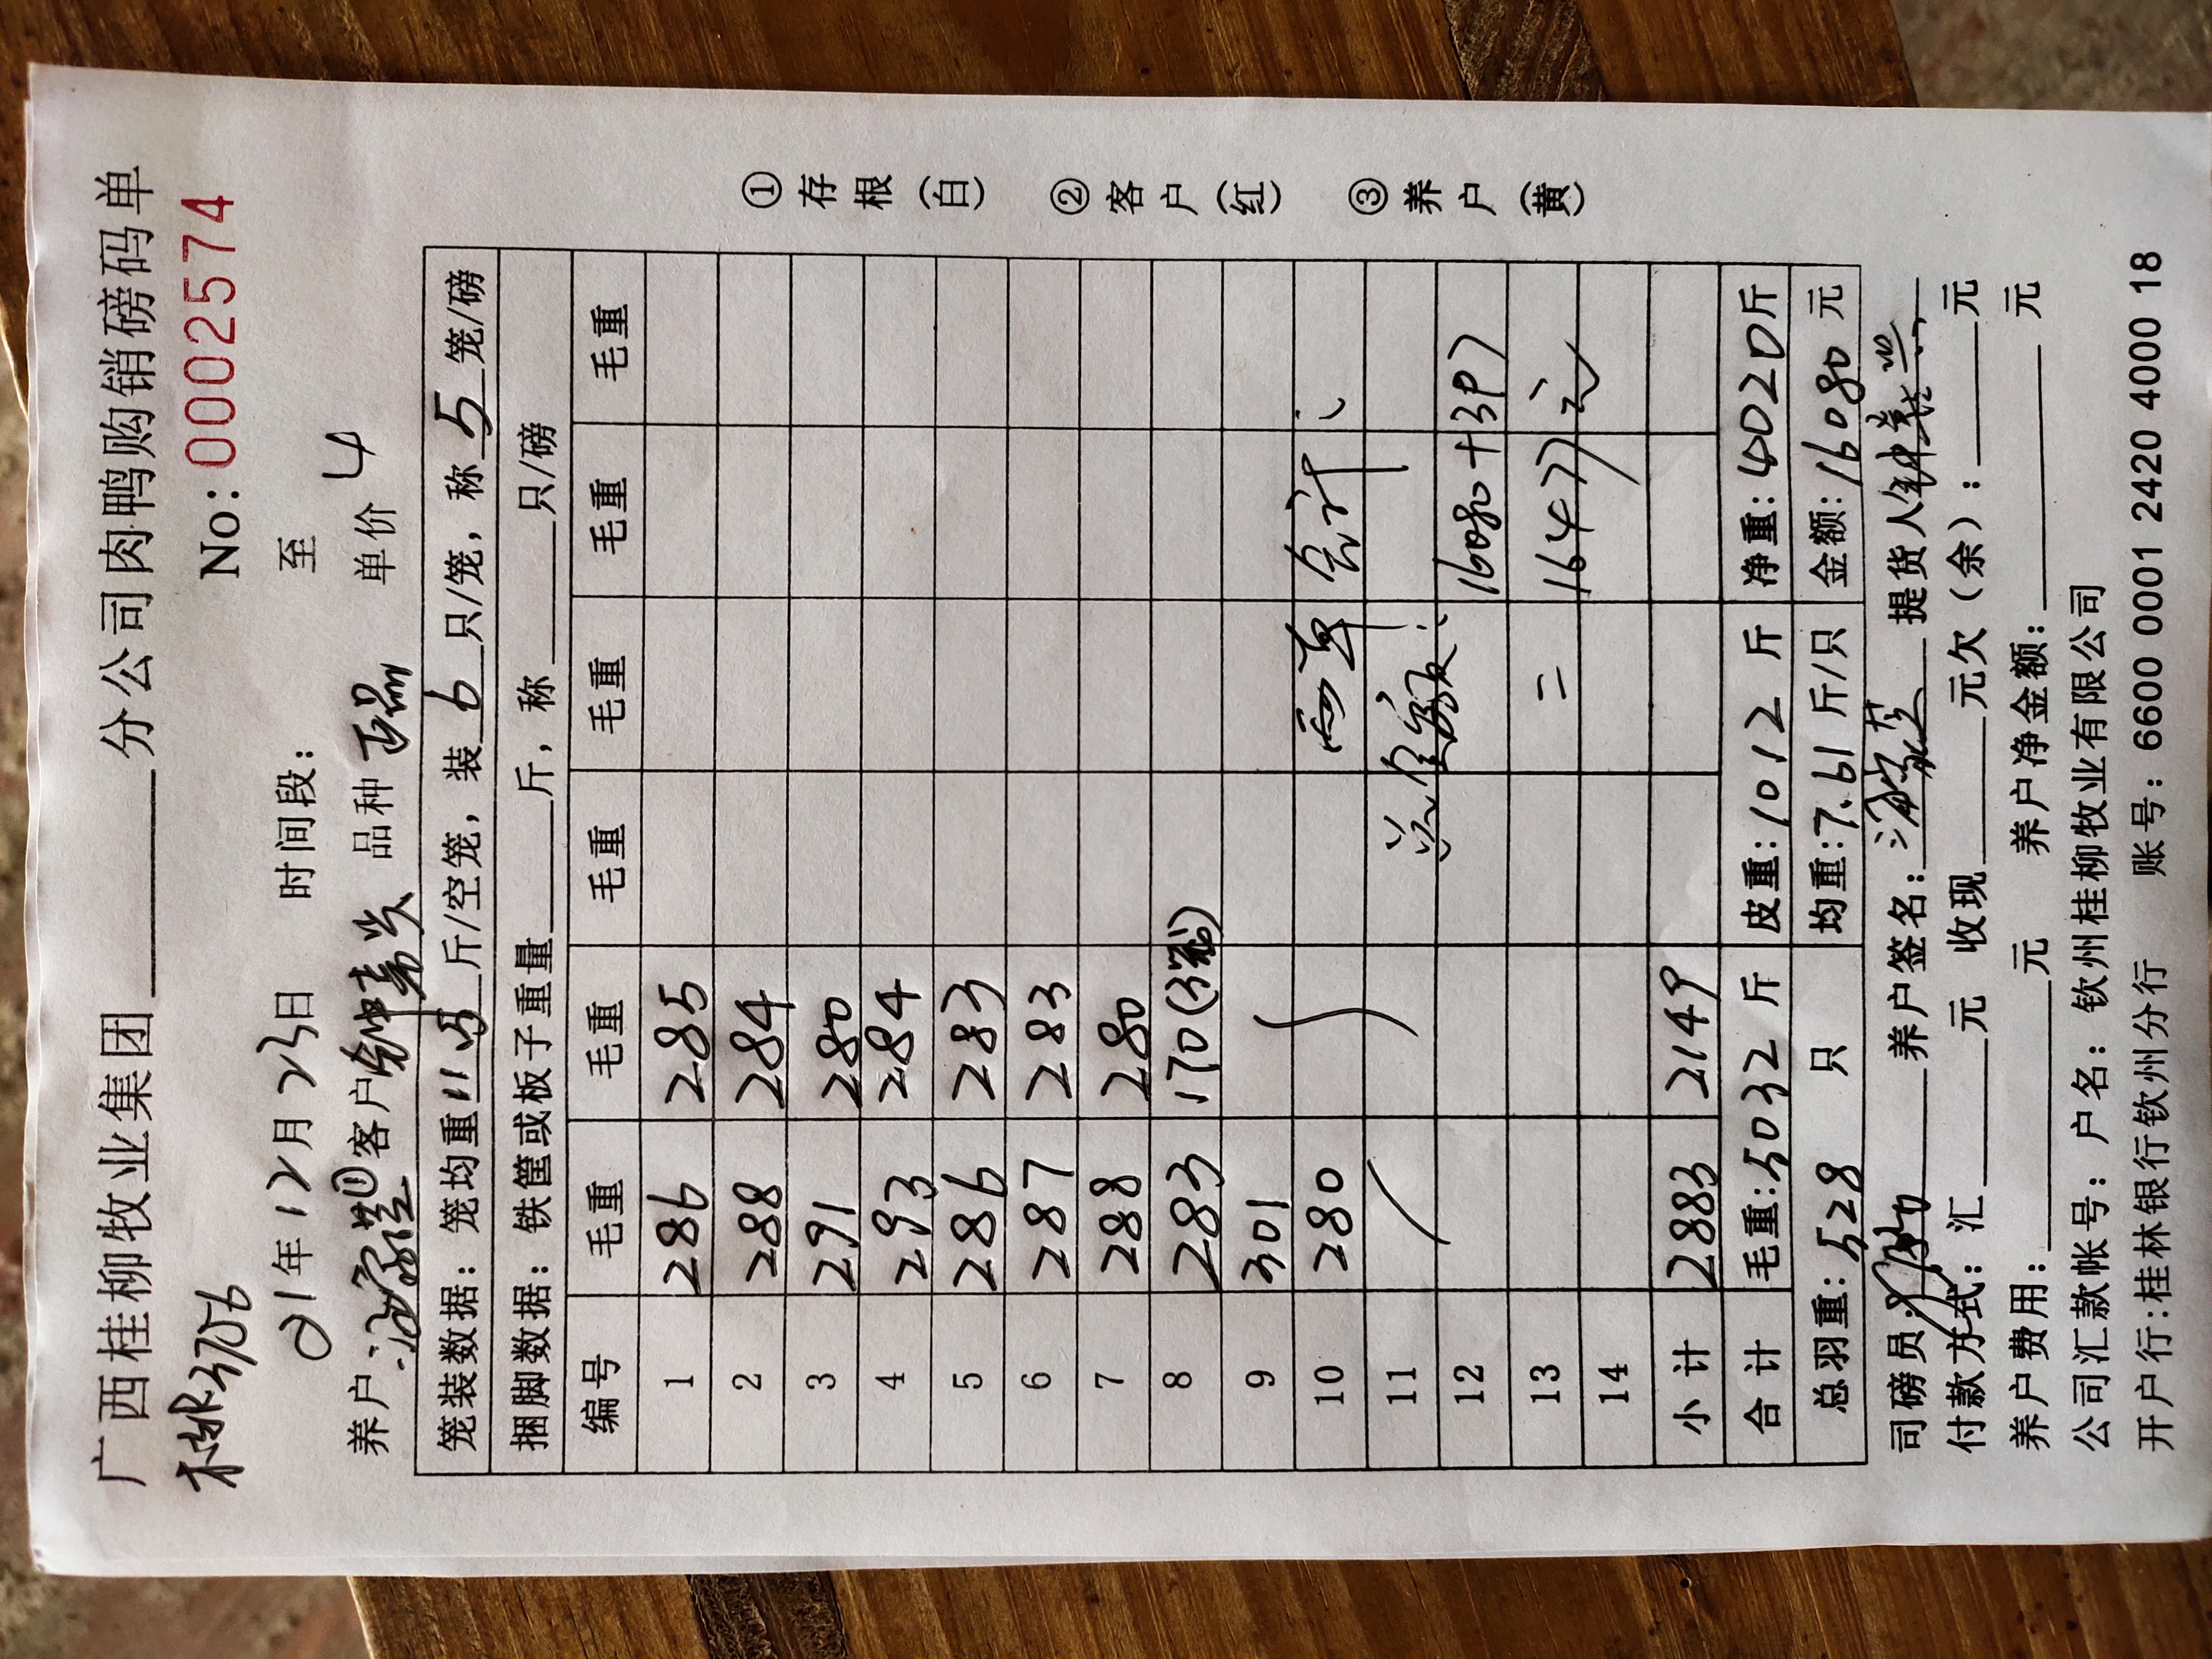 广西桂柳牧业集团______分公司肉鸭购销磅码单
No:0002574
21年12月23日 时间段: 至
养户: 客户 品种 单价 4
笼装数据:笼均重11.5斤/空笼,装6只/笼,称5笼/磅
捆脚数据:铁筐或板子重量____斤,称____只/磅
编号 毛重 毛重 毛重 毛重 毛重 毛重
1 286 285
2 288 284
3 291 280
4 293 284
5 286 283
6 287 283
7 288 280
8 283 170(3笼)
9 301
10 280 两单合计:
11 总金额:
12 16080+397
13 =16477元
14
小计 2883 2149
合计 毛重:5032斤 皮重:1012斤 净重:4020斤
总羽重:528只 均重:7.61斤/只 金额:16080元
司磅员: 养户签名: 提货人
付款方式:汇____元 收现____元欠(余):____元
养户费用:____元 养户净金额:____元
公司汇款帐号:户名:钦州桂柳牧业有限公司
开户行:桂林银行钦州分行 账号:6600 0001 2420 4000 18
①存根(白) ②客户(红) ③养户(黄)